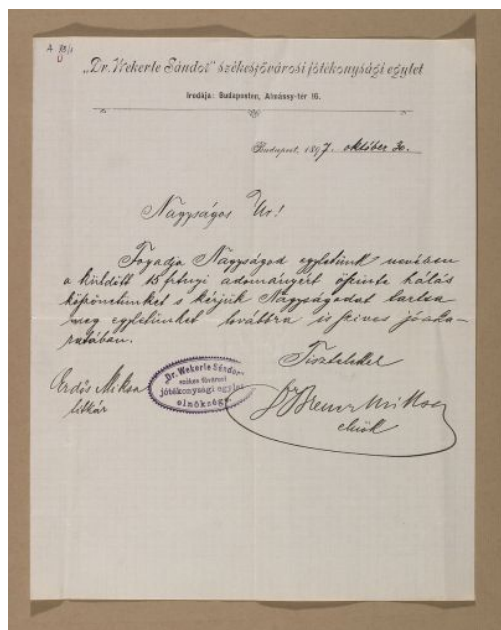 „Dr. Wekerle Sándor” székesfővárosi jótékonysági egylet
Irodája: Budapesten, Almássy-tér 16.
Budapest, 1897. október 30.
Nagyságos Ur!
Fogadja Nagyságod egyletünk nevében
a küldött 15 frtnyi adományért őszinte hálás
köszönetünket s kérjük Nagyságodat tartsa
meg egyletünket továbbra is szives jóaka-
ratában.
Tisztelettel
Erdős Miksa
titkár
„Dr. Wekerle Sándor”
székes fővárosi
jótékonysági egylet
elnöksége
Dr Miksa
elnök